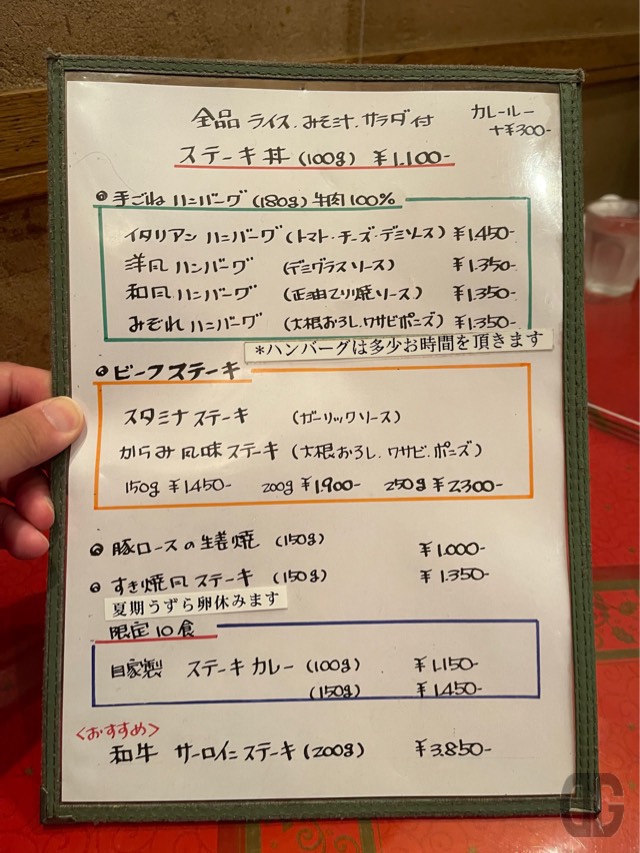 全品 ライス、みそ汁、サラダ付
カレールー
+¥300-
ステーキ丼 (100g) ¥1.100-
手ごねハンバーグ (180g) 牛肉100%
イタリアン ハンバーグ (トマト・チーズ・デミソース) ¥1.450-
洋風ハンバーグ (デミグラスソース) ¥1.350-
和風ハンバーグ (正油てり焼ソース) ¥1.350-
みぞれハンバーグ (大根おろし、ワサビポンズ) ¥1.350-
*ハンバーグは多少お時間を頂きます
ビーフステーキ
スタミナステーキ (ガーリックソース)
からみ風味ステーキ (大根おろし、ワサビ、ポンズ)
150g ¥1450- 200g ¥1.900- 250g ¥2.300-
豚ロースの生姜焼 (150g) ¥1.000-
すき焼風ステーキ (150g) ¥1.350-
夏期うずら卵休みます
限定10食
自家製 ステーキカレー (100g) ¥1.150-
(150g) ¥1.450-
<おすすめ>
和牛 サーロインステーキ (200g) ¥3.850-